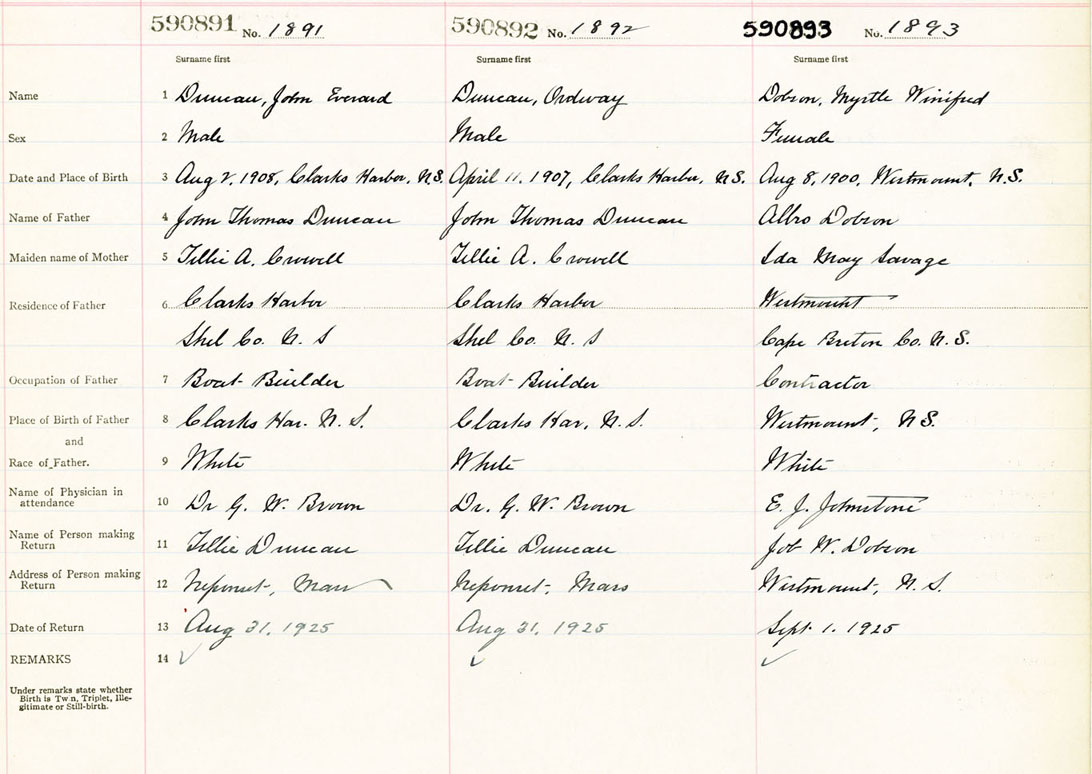 590891 No. 1891 590892 No. 1892 590893 No. 1893
Surname first Surname first Surname first
Name 1 Duncan, John Everard Duncan, Ordway Dobson, Myrtle Winifred
Sex 2 Male Male Female
Date and Place of Birth 3 Aug 2, 1908, Clarks Harbor, N.S. April 11, 1907, Clarks Harbor, N.S. Aug 8, 1900, Westmount, N.S.
Name of Father 4 John Thomas Duncan John Thomas Duncan Albro Dobson
Maiden name of Mother 5 Tillie A. Crowell Tillie A. Crowell Ida May Savage
Residence of Father 6 Clarks Harbor Clarks Harbor Westmount
Shel Co. N. S Shel Co. N. S Cape Breton Co. N.S.
Occupation of Father 7 Boat-Builder Boat-Builder Contractor
Place of Birth of Father 8 Clarks Har. N. S. Clarks Har, N. S. Westmount, N.S.
and
Race of Father. 9 White White White
Name of Physician in
attendance 10 Dr G. W. Brown Dr. G. W. Brown E. J. Johnstone
Name of Person making
Return 11 Tillie Duncan Tillie Duncan Job W. Dobson
Address of Person making
Return 12 Neponset, Mass Neponset, Mass Westmount, N. S.
Date of Return 13 Aug 31, 1925 Aug 31, 1925 Sept 1. 1925
REMARKS 14 ✓ ✓ ✓
Under remarks state whether
Birth is Tw n, Triplet, Ille-
gitimate or Still-birth.